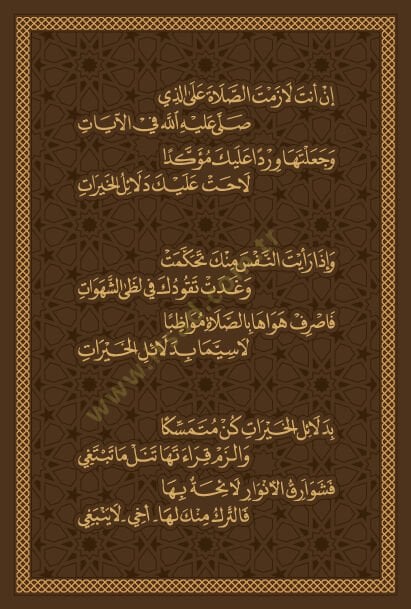 إِنْ أَنْتَ لَازَمْتَ الصَّلَاةَ عَلَى الَّذِي
صَلَّى عَلَيْهِ اللّٰه فِي الْآيَاتِ
وَجَعَلْتَهَا وِرْدًا عَلَيْكَ مُؤَكَّدًا
لَاحَتْ عَلَيْكَ دَلَائِلُ الْخَيْرَاتِ
وَإِذَا رَأَيْتَ النَّفْسَ مِنْكَ تَحَكَّمَتْ
وَغَدَتْ تَقُودُكَ فِي لَظَى الشَّهَوَاتِ
فَاصْرِفْ هَوَاهَا بِالصَّلَاةِ مُوَاظِبًا
لَاسِيَّمَا بِدَلَائِلِ الْخَيْرَاتِ
بِدَلَائِلِ الْخَيْرَاتِ كُنْ مُتَمَسِّكًا
وَالْزَمْ قِرَاءَتَهَا تَنَلْ مَا تَبْتَغِي
فَشَوَارِقُ الْأَنْوَارِ لَائِحَةٌ بِهَا
فَالتَّرْكُ مِنْكَ لَهَا ـ أَخِي ـ لَا يَنْبَغِي